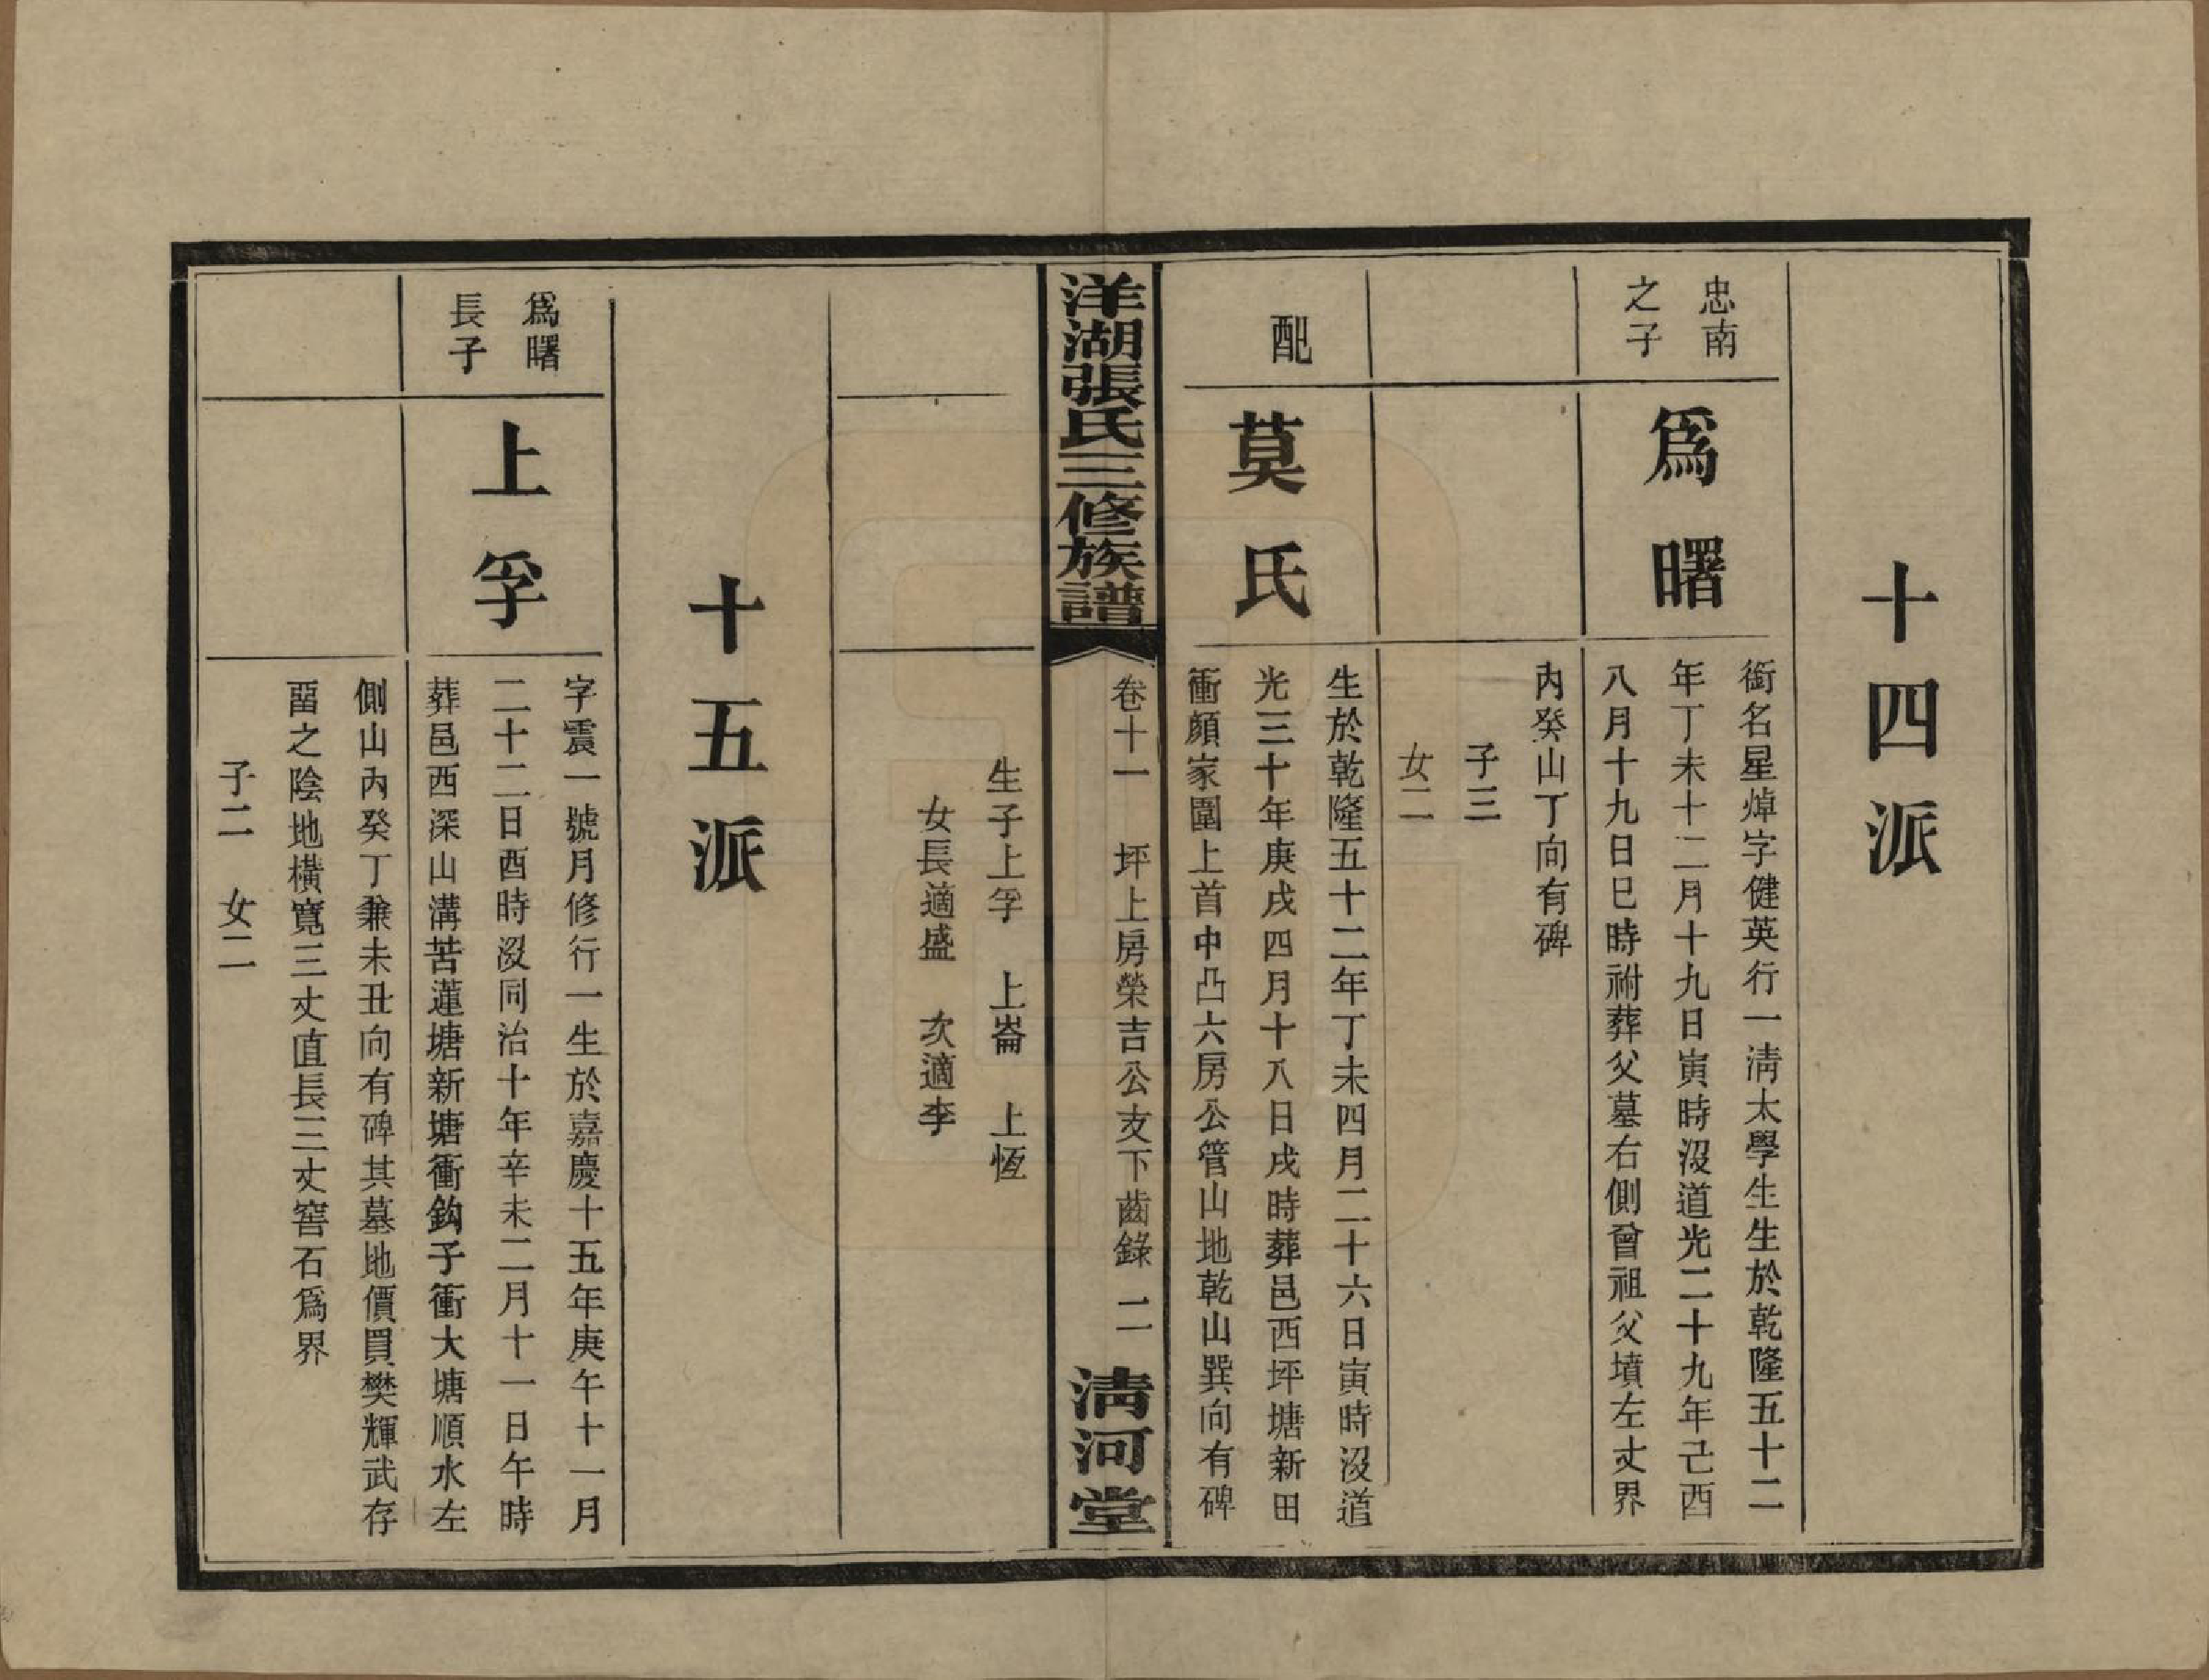 十四派
忠南
之子
爲曙
銜名星焯字健英行一淸太學生生於乾隆五十二
年丁未十二月十九日寅時沒道光二十九年己酉
八月十九日巳時祔葬父墓右側曾祖父墳左丈界
內癸山丁向有碑
子三
女二
配
莫氏
生於乾隆五十二年丁未四月二十六日寅時沒道
光三十年庚戌四月十八日戌時葬邑西坪塘新田
衝顏家圍上首中凸六房公管山地乾山巽向有碑
洋湖張氏三修族譜
卷十一 坪上房榮吉公支下齒錄 二
淸河堂
生子上孚 上崙 上恆
女長適盛 次適李
十五派
爲曙
長子
上孚
字震一號月修行一生於嘉慶十五年庚午十一月
二十二日酉時沒同治十年辛未二月十一日午時
葬邑西深山溝苦蓮塘新塘衝鈎子衝大塘順水左
側山內癸丁兼未丑向有碑其墓地價買樊輝武存
畱之陰地橫寬三丈直長三丈窖石爲界
子二 女二